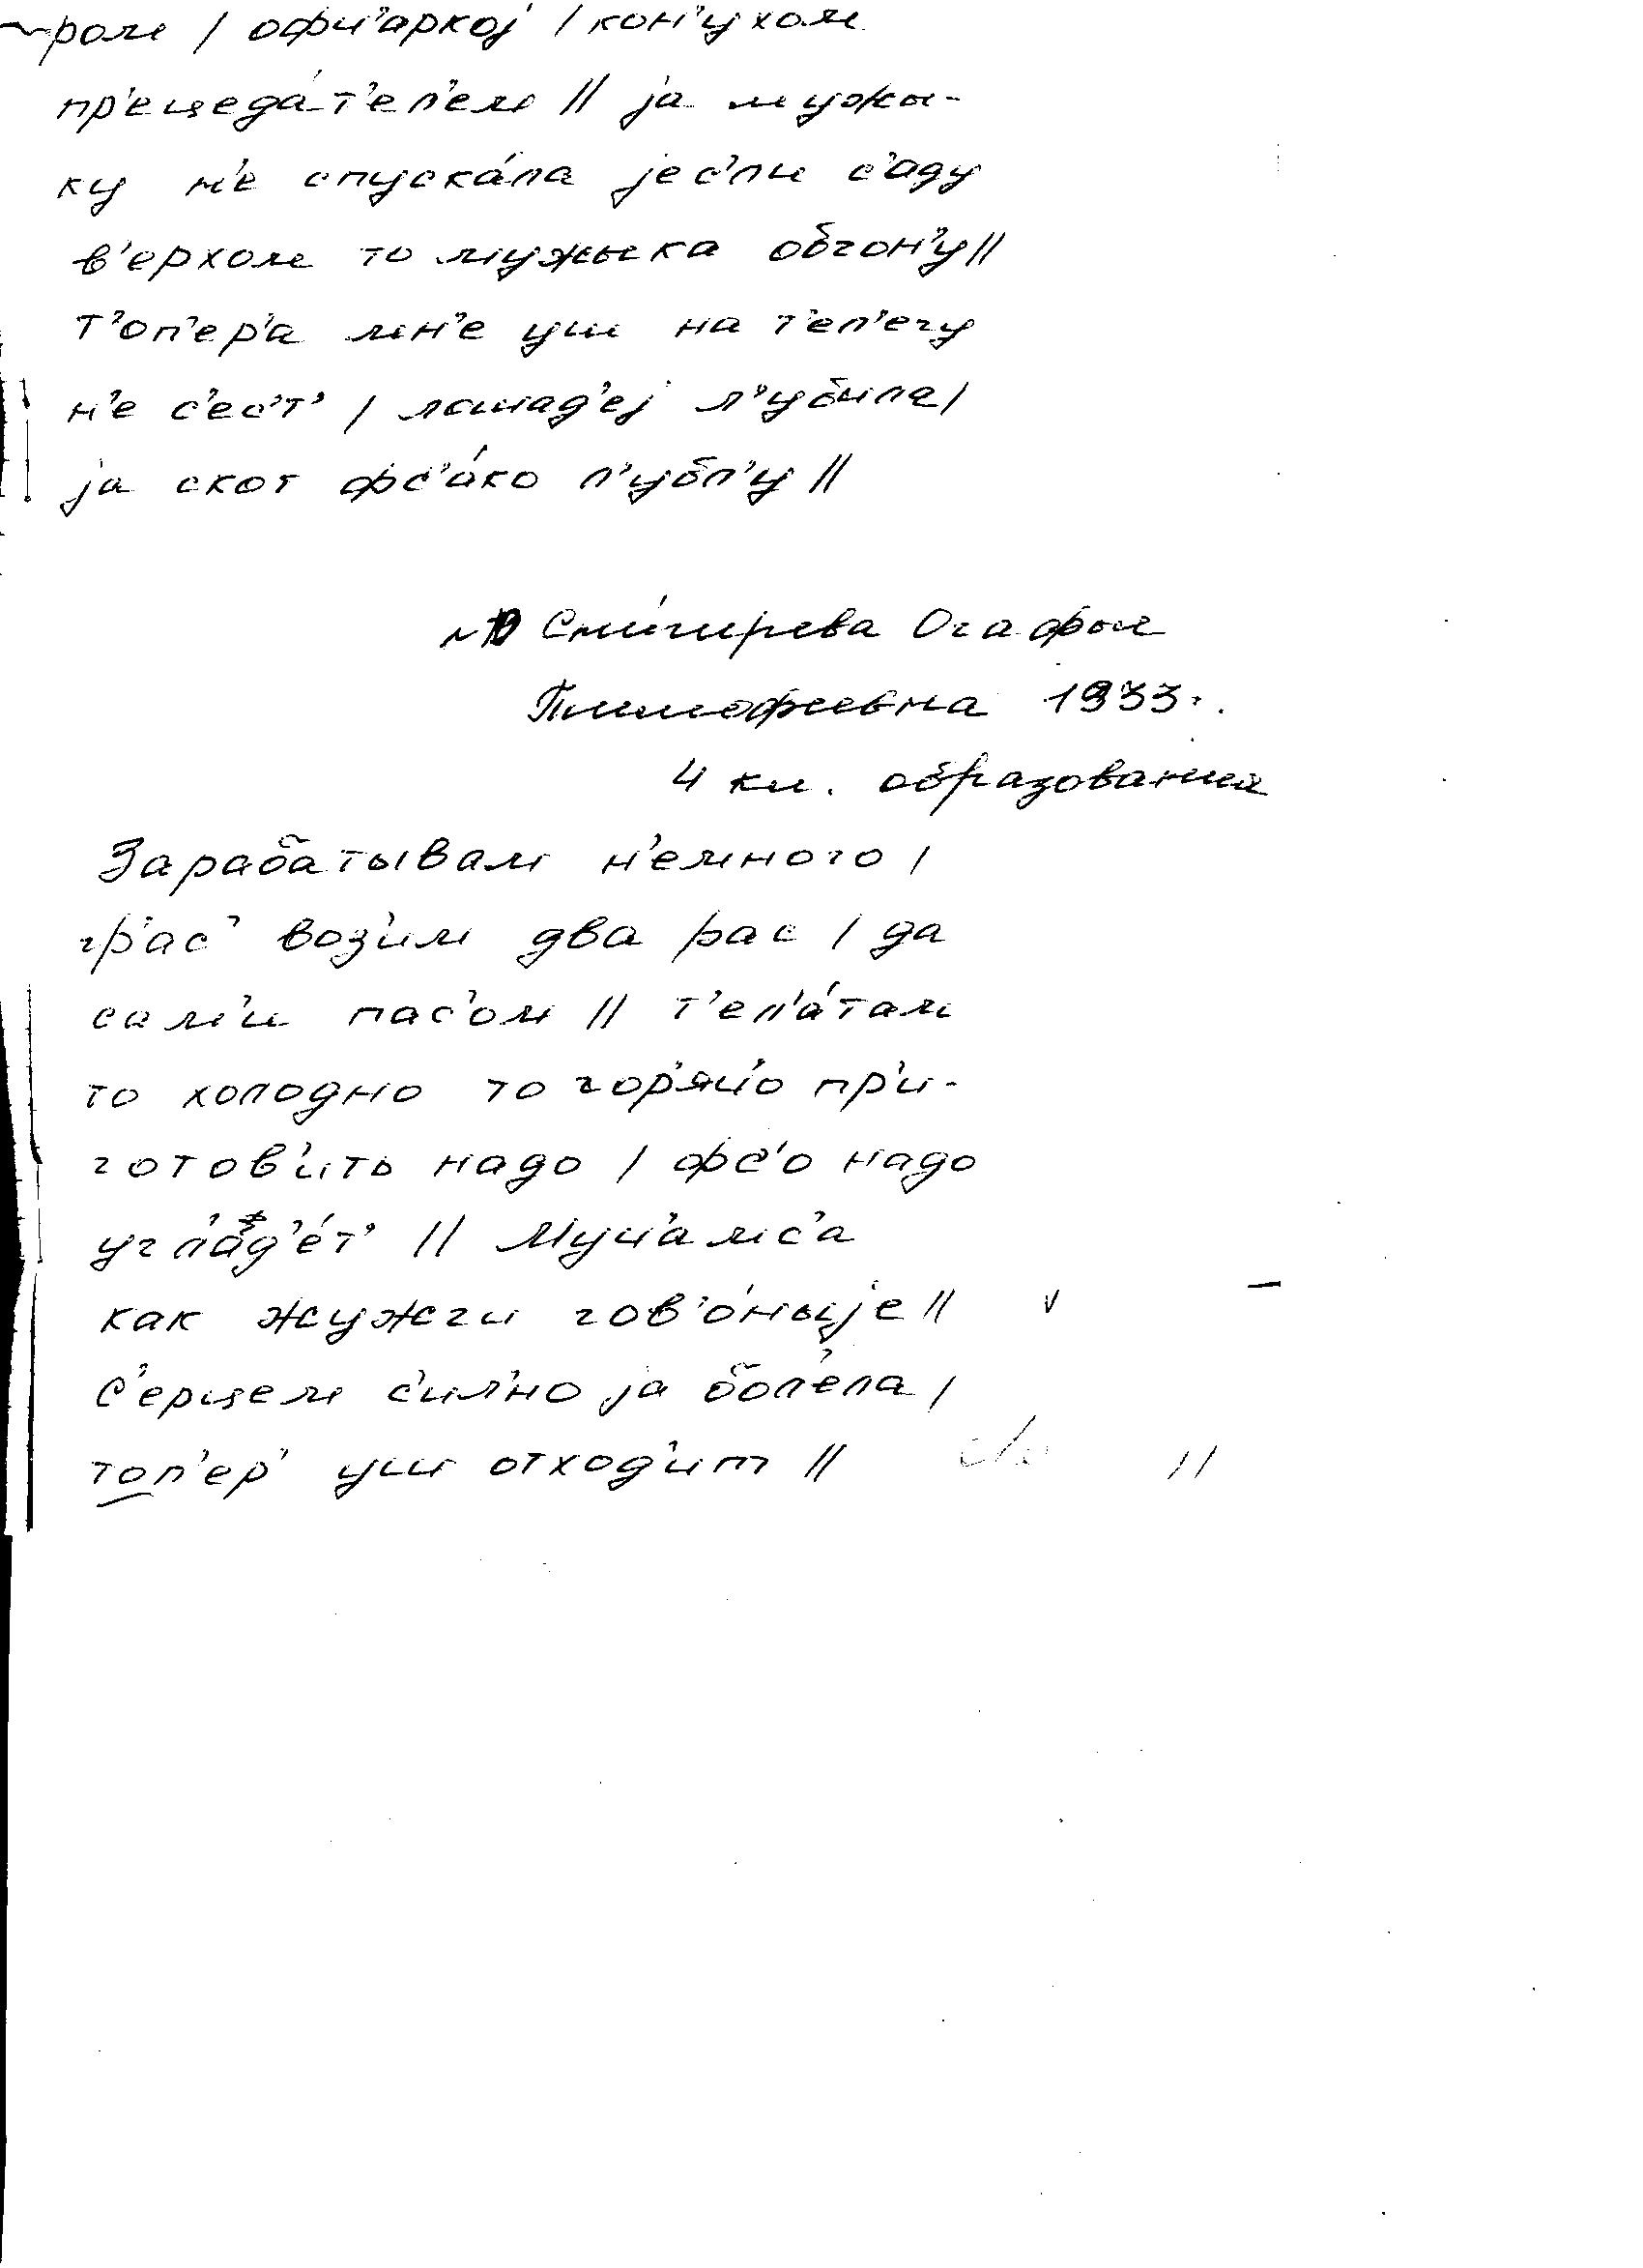 ром / офц'аркој / кон'ухом
пр'ецеда́т'ел'ем // ја мужы-
ку н'е спуска́ла јес'ли с'аду
в'ерхом то мужыка обгон'у //
т'оп'ер'а мн'е уш на т'ел'егу
н'е с'ес'т' / лошад'еј л'убила /
ја скот фс'а́ко л'убл'у //
Снигирева Огафья
Тимофеевна 1933г.
4 кл. образования
Зарабатывам н'емного /
гр'ас' воз'им два рас / да
сам'и пас'ом // т'ел'а́там
то холодно то гор'яц'о пр'и-
готов'ить надо / фс'о надо
угл'ад'е́т' // Муц'амс'а
как жужги гов'о́ныје //
С'ерцем с'ил'но ја бол'е́ла /
топ'ер' уш отход'ит //